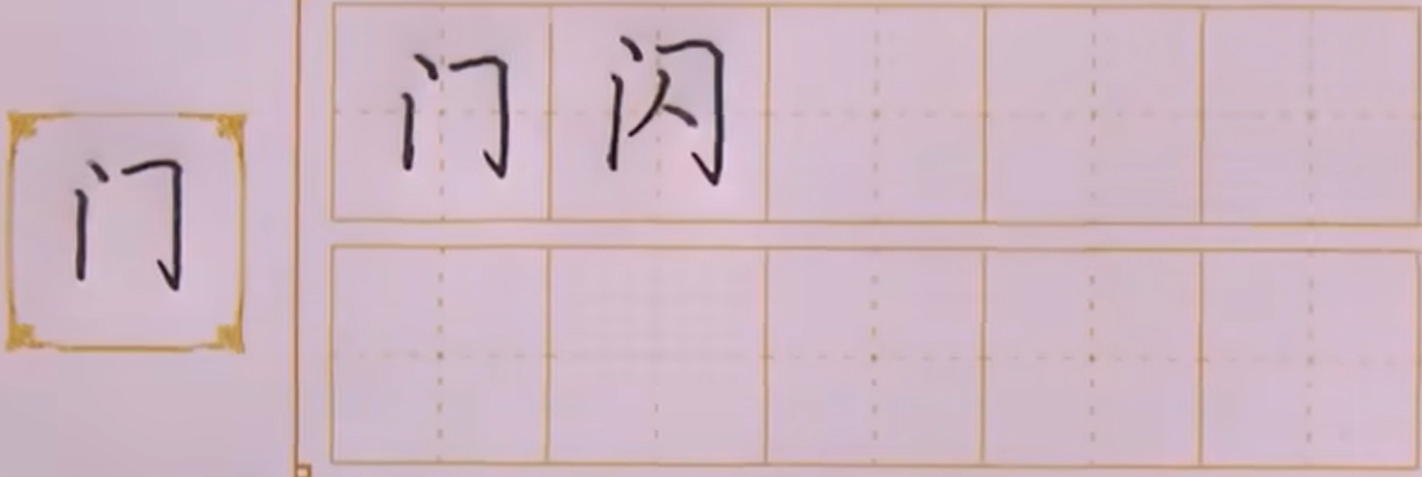 门
门闪